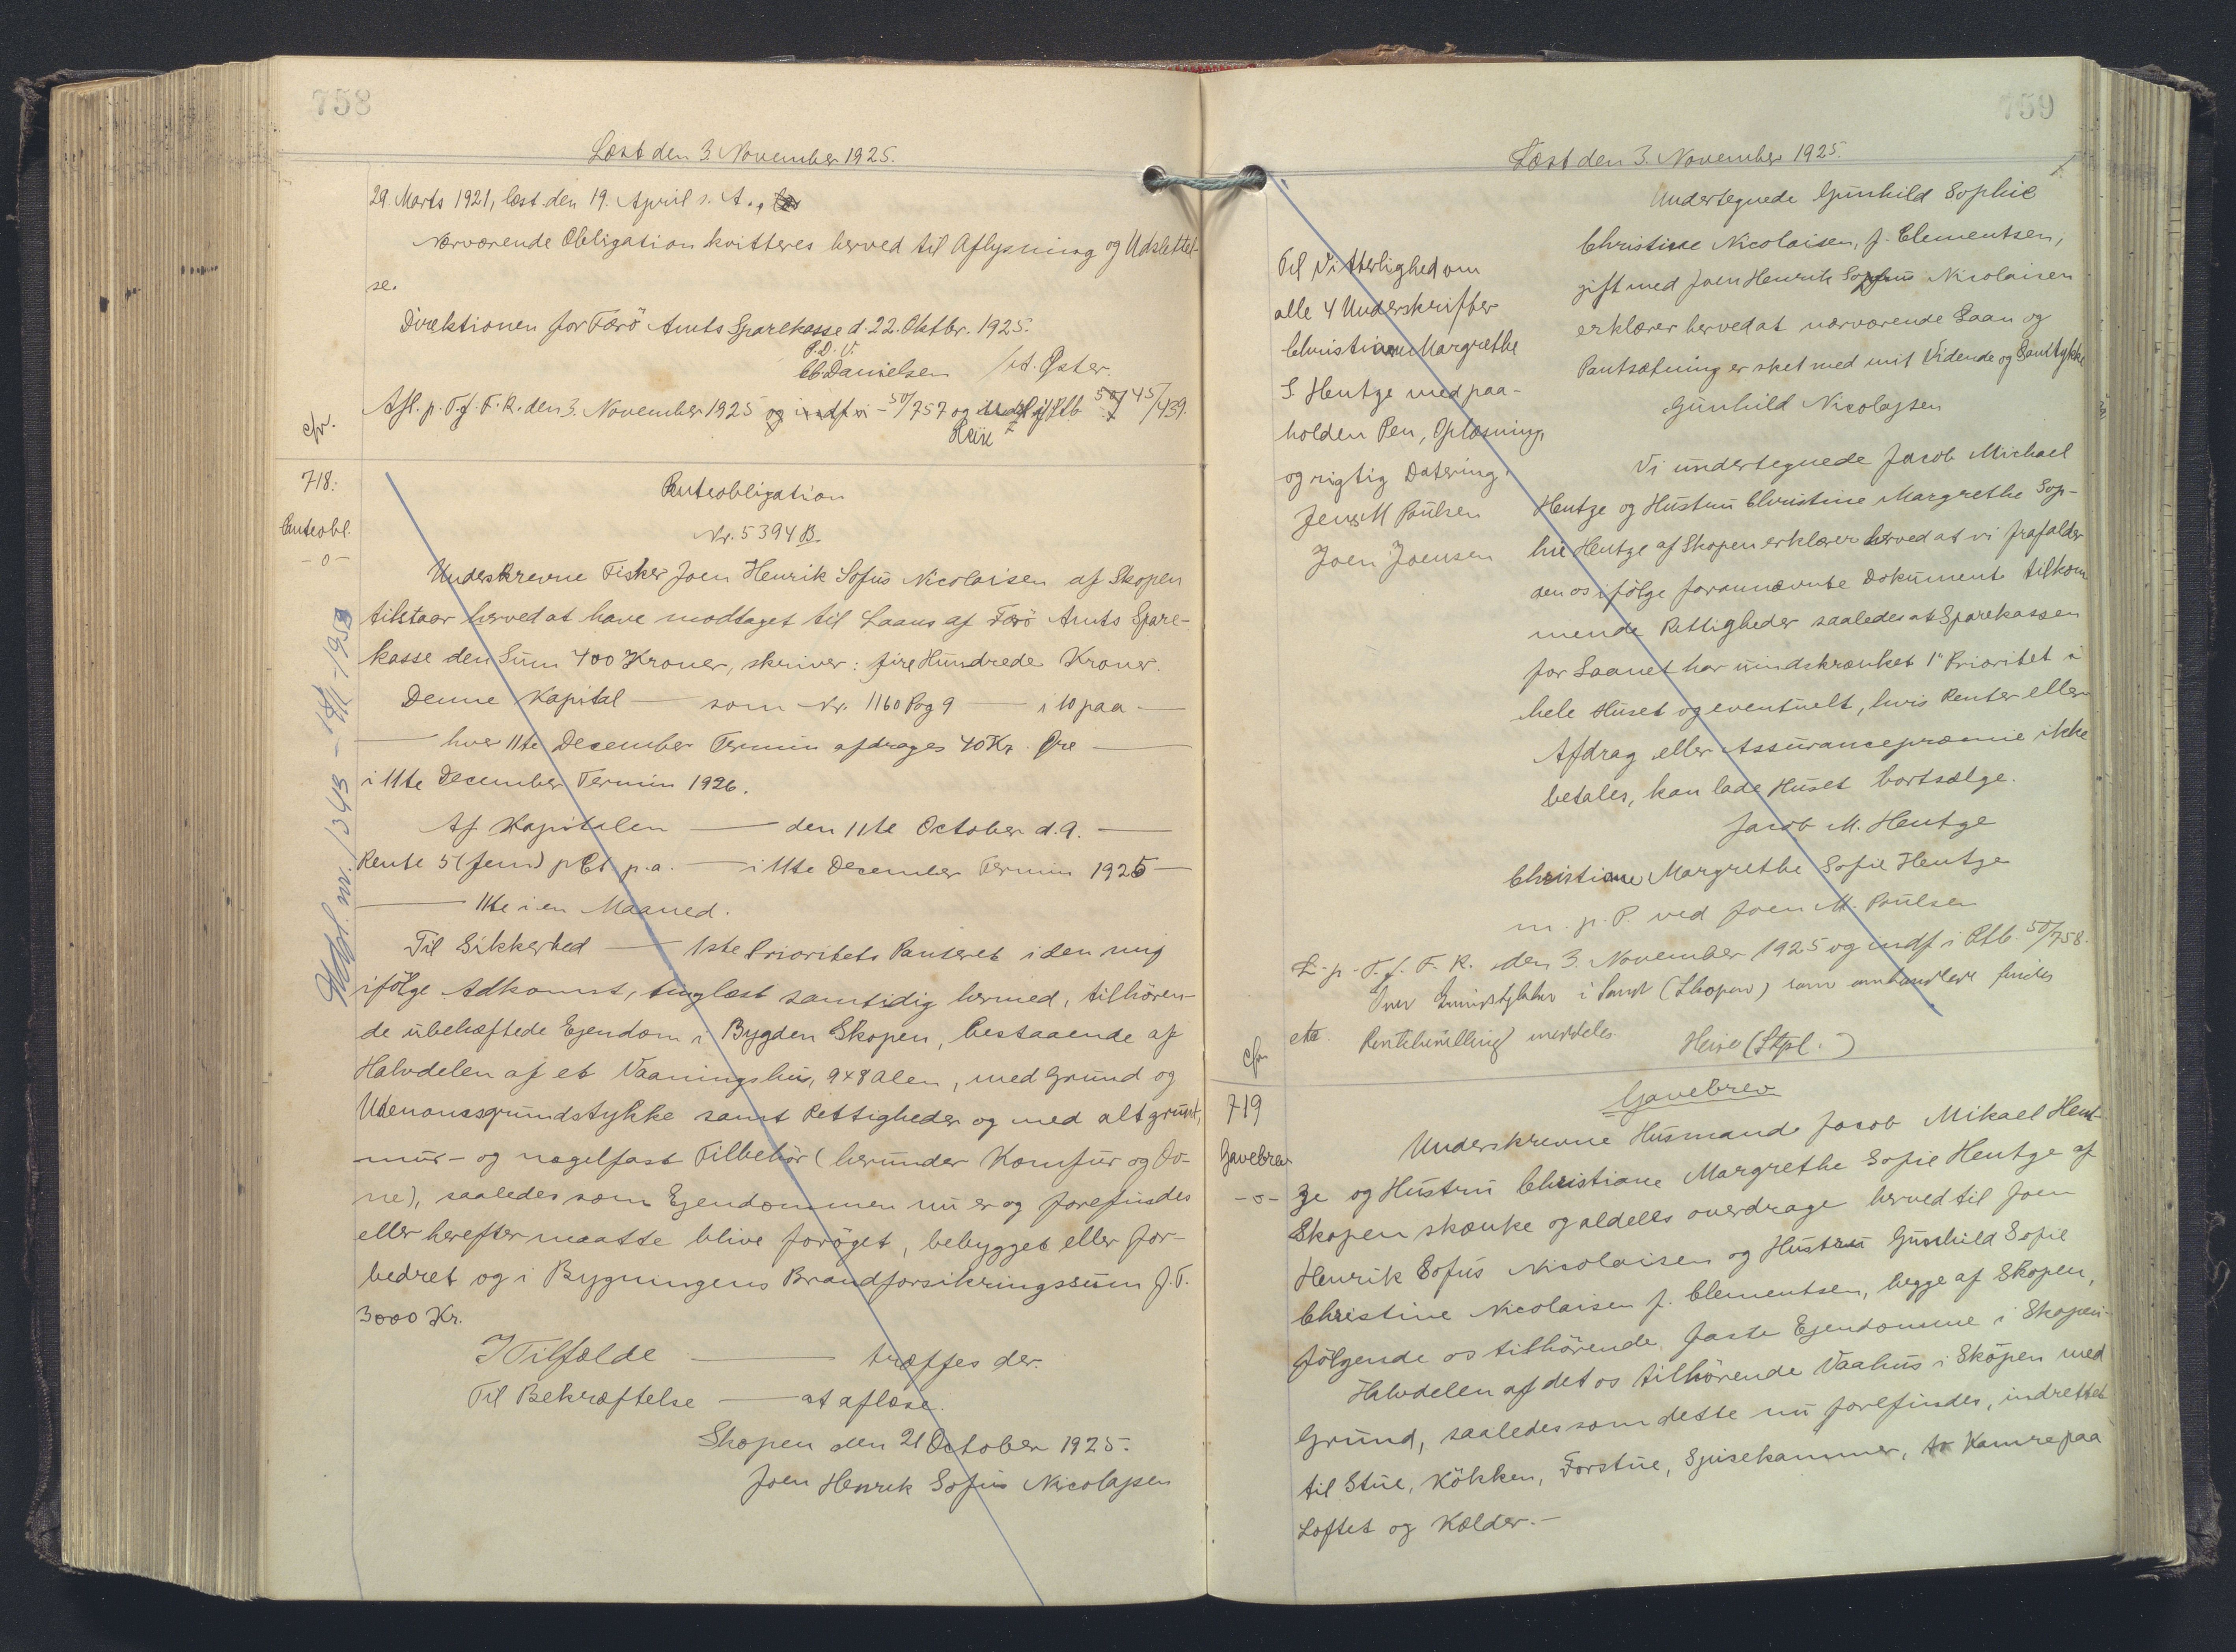 758
Læst den 3. November 1925.
29. Marts 1921, læst den 19. April s. A.,
Nærværende Obligation kvitteres herved til Aflysning og Udslettel-
se.
Direktionen for Færö Amts Sparekasse d. 22. Oktbr. 1925.
P.D.V.
Danielsen / Øster.
cfr.
Afl. p. T. f. F. R. den 3. November 1925 og indf. i 50/757 og 45/439.
718.
Panteobl.
-o-
Panteobligation
Nr. 5394 B.
Underskrevne Fisker Joen Henrik Sofus Nicolaisen af Skopen
tilstaar herved at have modtaget til Laans af Færö Amts Spare-
kasse den Sum 400 Kroner, skriver: fire Hundrede Kroner.
Denne Kapital — som Nr. 1160 Pag 9 — i 10 paa —
— hver 11te December Termin afdrages 40 Kr. Øre —
i 11te December Termin 1926.
Af Kapitalen — den 11te October d. A. —
Rente 5 (fem) pCt p.a. — i 11te December Termin 1925 —
— 11te i en Maaned.
Til Sikkerhed — 1ste Prioritets Panteret i den mig
ifölge Adkomst, tinglæst samtidig hermed, tilhören-
de ubehæftede Ejendom i Bygden Skopen, bestaaende af
Halvdelen af et Vaaningshus, 9x8 Alen, med Grund og
Udenomsgrundstykke samt Rettigheder og med alt grund,
mur- og nagelfast Tilbehör (herunder Komfur og Ov-
ne), saaledes som Ejendommen nu er og forefindes
eller herefter maatte blive foröget, bebygget eller for-
bedret og i Bygningens Brandforsikringssum f. T.
3000 Kr.
I Tilfælde — træffes der.
Til Bekræftelse — at aflæse.
Skopen den 21 October 1925.
Joen Henrik Sofus Nicolajsen
759
Læst den 3. November 1925.
Undertegnede Gunhild Sophie
Christine Nicolaisen, f. Clementsen,
gift med Joen Henrik Sophus Nicolaisen
erklærer herved at nærværende Laan og
Pantsætning er sket med mit Vidende og Samtykke
Gunhild Nicolajsen
Til Vitterlighed om
alle 4 Underskrifter
Christiane Margrethe
S. Hentze med paa-
holden Pen, Oplæsning,
og rigtig Datering.
Jens M Poulsen
Joen Joensen
Vi undertegnede Jacob Michael
Hentze og Hustru Christine Margrethe Sop-
hie Hentze af Skopen erklærer herved at vi frafalder
den os ifölge forannævnte Dokument tilkom
mende Rettigheder saaledes at Sparekassen
for Laanet har uindskrænket 1" Prioritet i
hele Huset og eventuelt, hvis Renter eller
Afdrag eller Assurancepræmie ikke
betales, kan lade Huset bortsælge.
Jacob M. Hentze
Christiane Margrethe Sofie Hentze
m. p. P. ved Joen M. Poulsen
L. p. T. f. F. R. den 3. November 1925 og indf i Ptb. 50/758.
i Sand (Skopen) som omhandlede findes
meddeles.
Heise (Stpl.)
cfr
719
Gavebrev
-o-
Gavebrev
Underskrevne Husmand Jacob Mikael Hent-
ze og Hustru Christiane Margrethe Sofie Hentze af
Skopen skænke og aldeles overdrage herved til Joen
Henrik Sofus Nicolaisen og Hustru Gunhild Sofie
Christine Nicolaisen f. Clementsen, begge af Skopen,
fölgende os tilhörende faste Ejendomme i Skopen.
Halvdelen af det os tilhörende Vaahus i Skopen med
Grund, saaledes som dette nu forefindes, indrettet
til Stue, Kökken, Forstue, Spisekammer, to Kamre paa
Loftet og Kælder.-